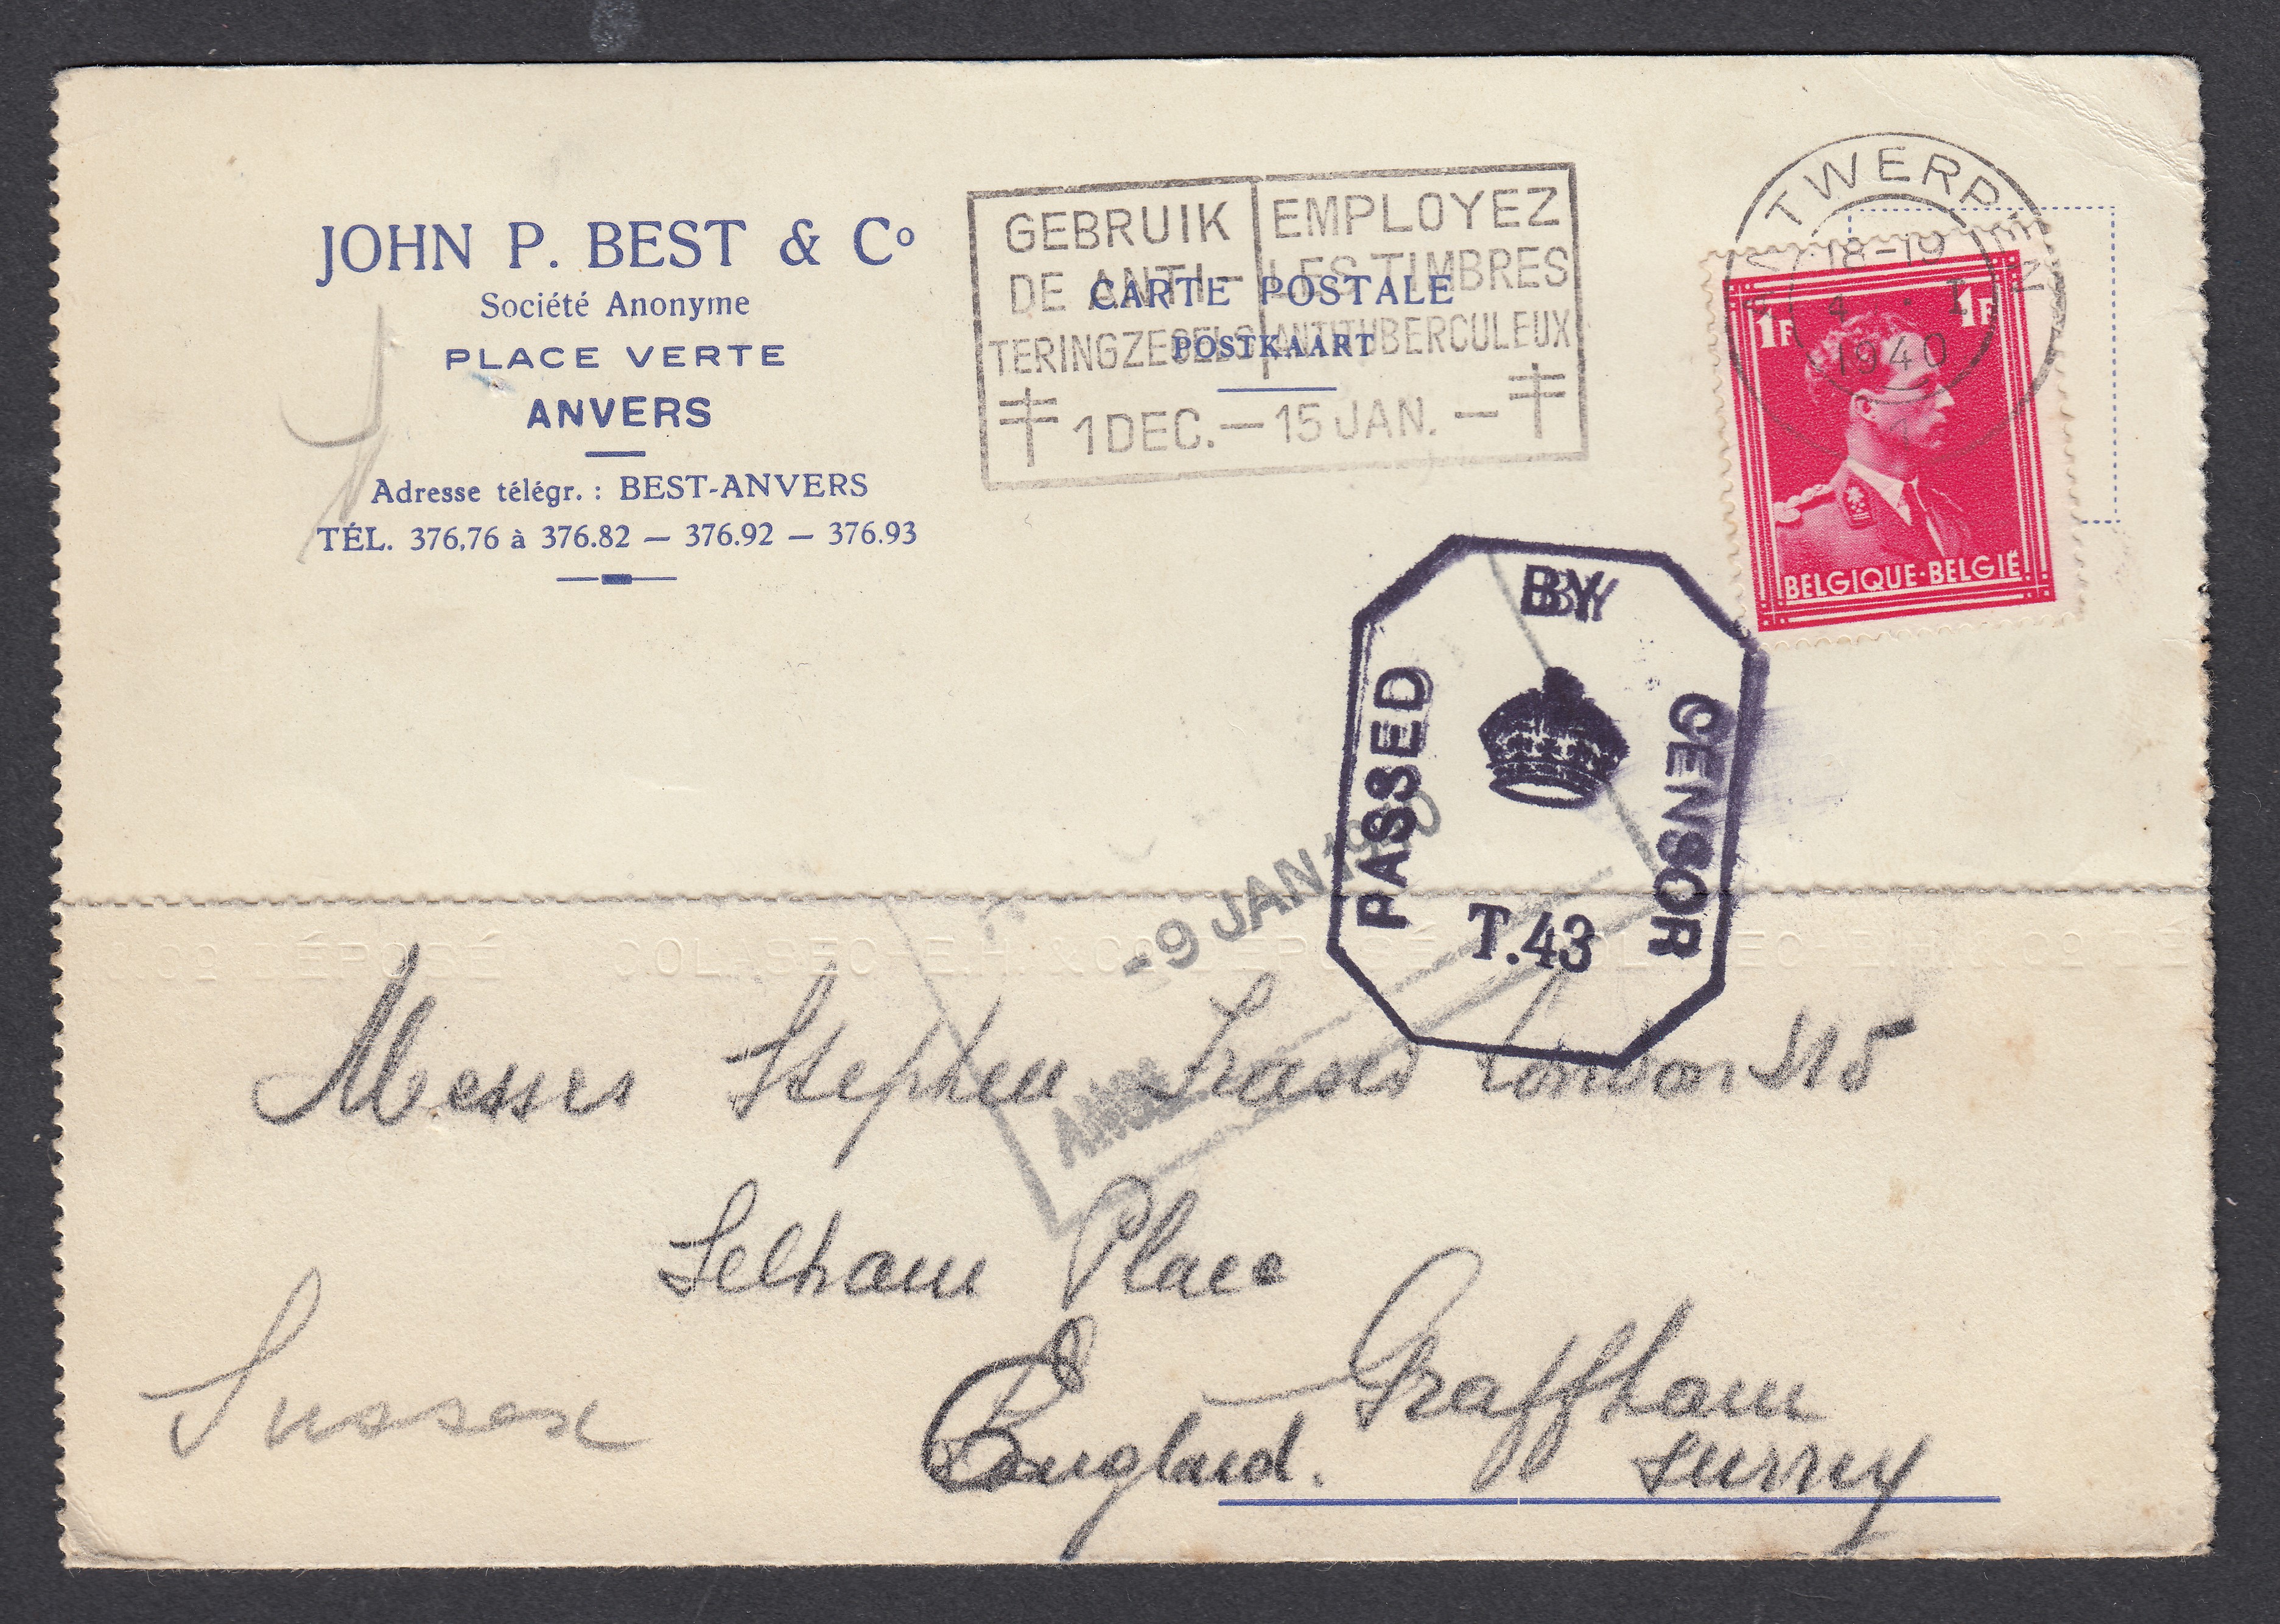 JOHN P. BEST & Cº
Société Anonyme
PLACE VERTE
ANVERS
Adresse télégr. : BEST-ANVERS
TÉL. 376,76 à 376.82 — 376.92 — 376.93
GEBRUIK
DE ANTI-
TERINGZEGELS
EMPLOYEZ
LES TIMBRES
ANTITUBERCULEUX
1 DEC. — 15 JAN. —
CARTE POSTALE
POSTKAART
ANTWERPEN
18-19
4 · I
1940
1F 1F
BELGIQUE·BELGIË
PASSED BY CENSOR
T.43
-9 JAN 1940
ANSD.
& Cº DÉPOSÉ COL. DEC. E.H. & Cº DÉPOSÉ
Messrs Stephen Fraser London
Selham Place
Graffham
Sussex
England.
Surrey